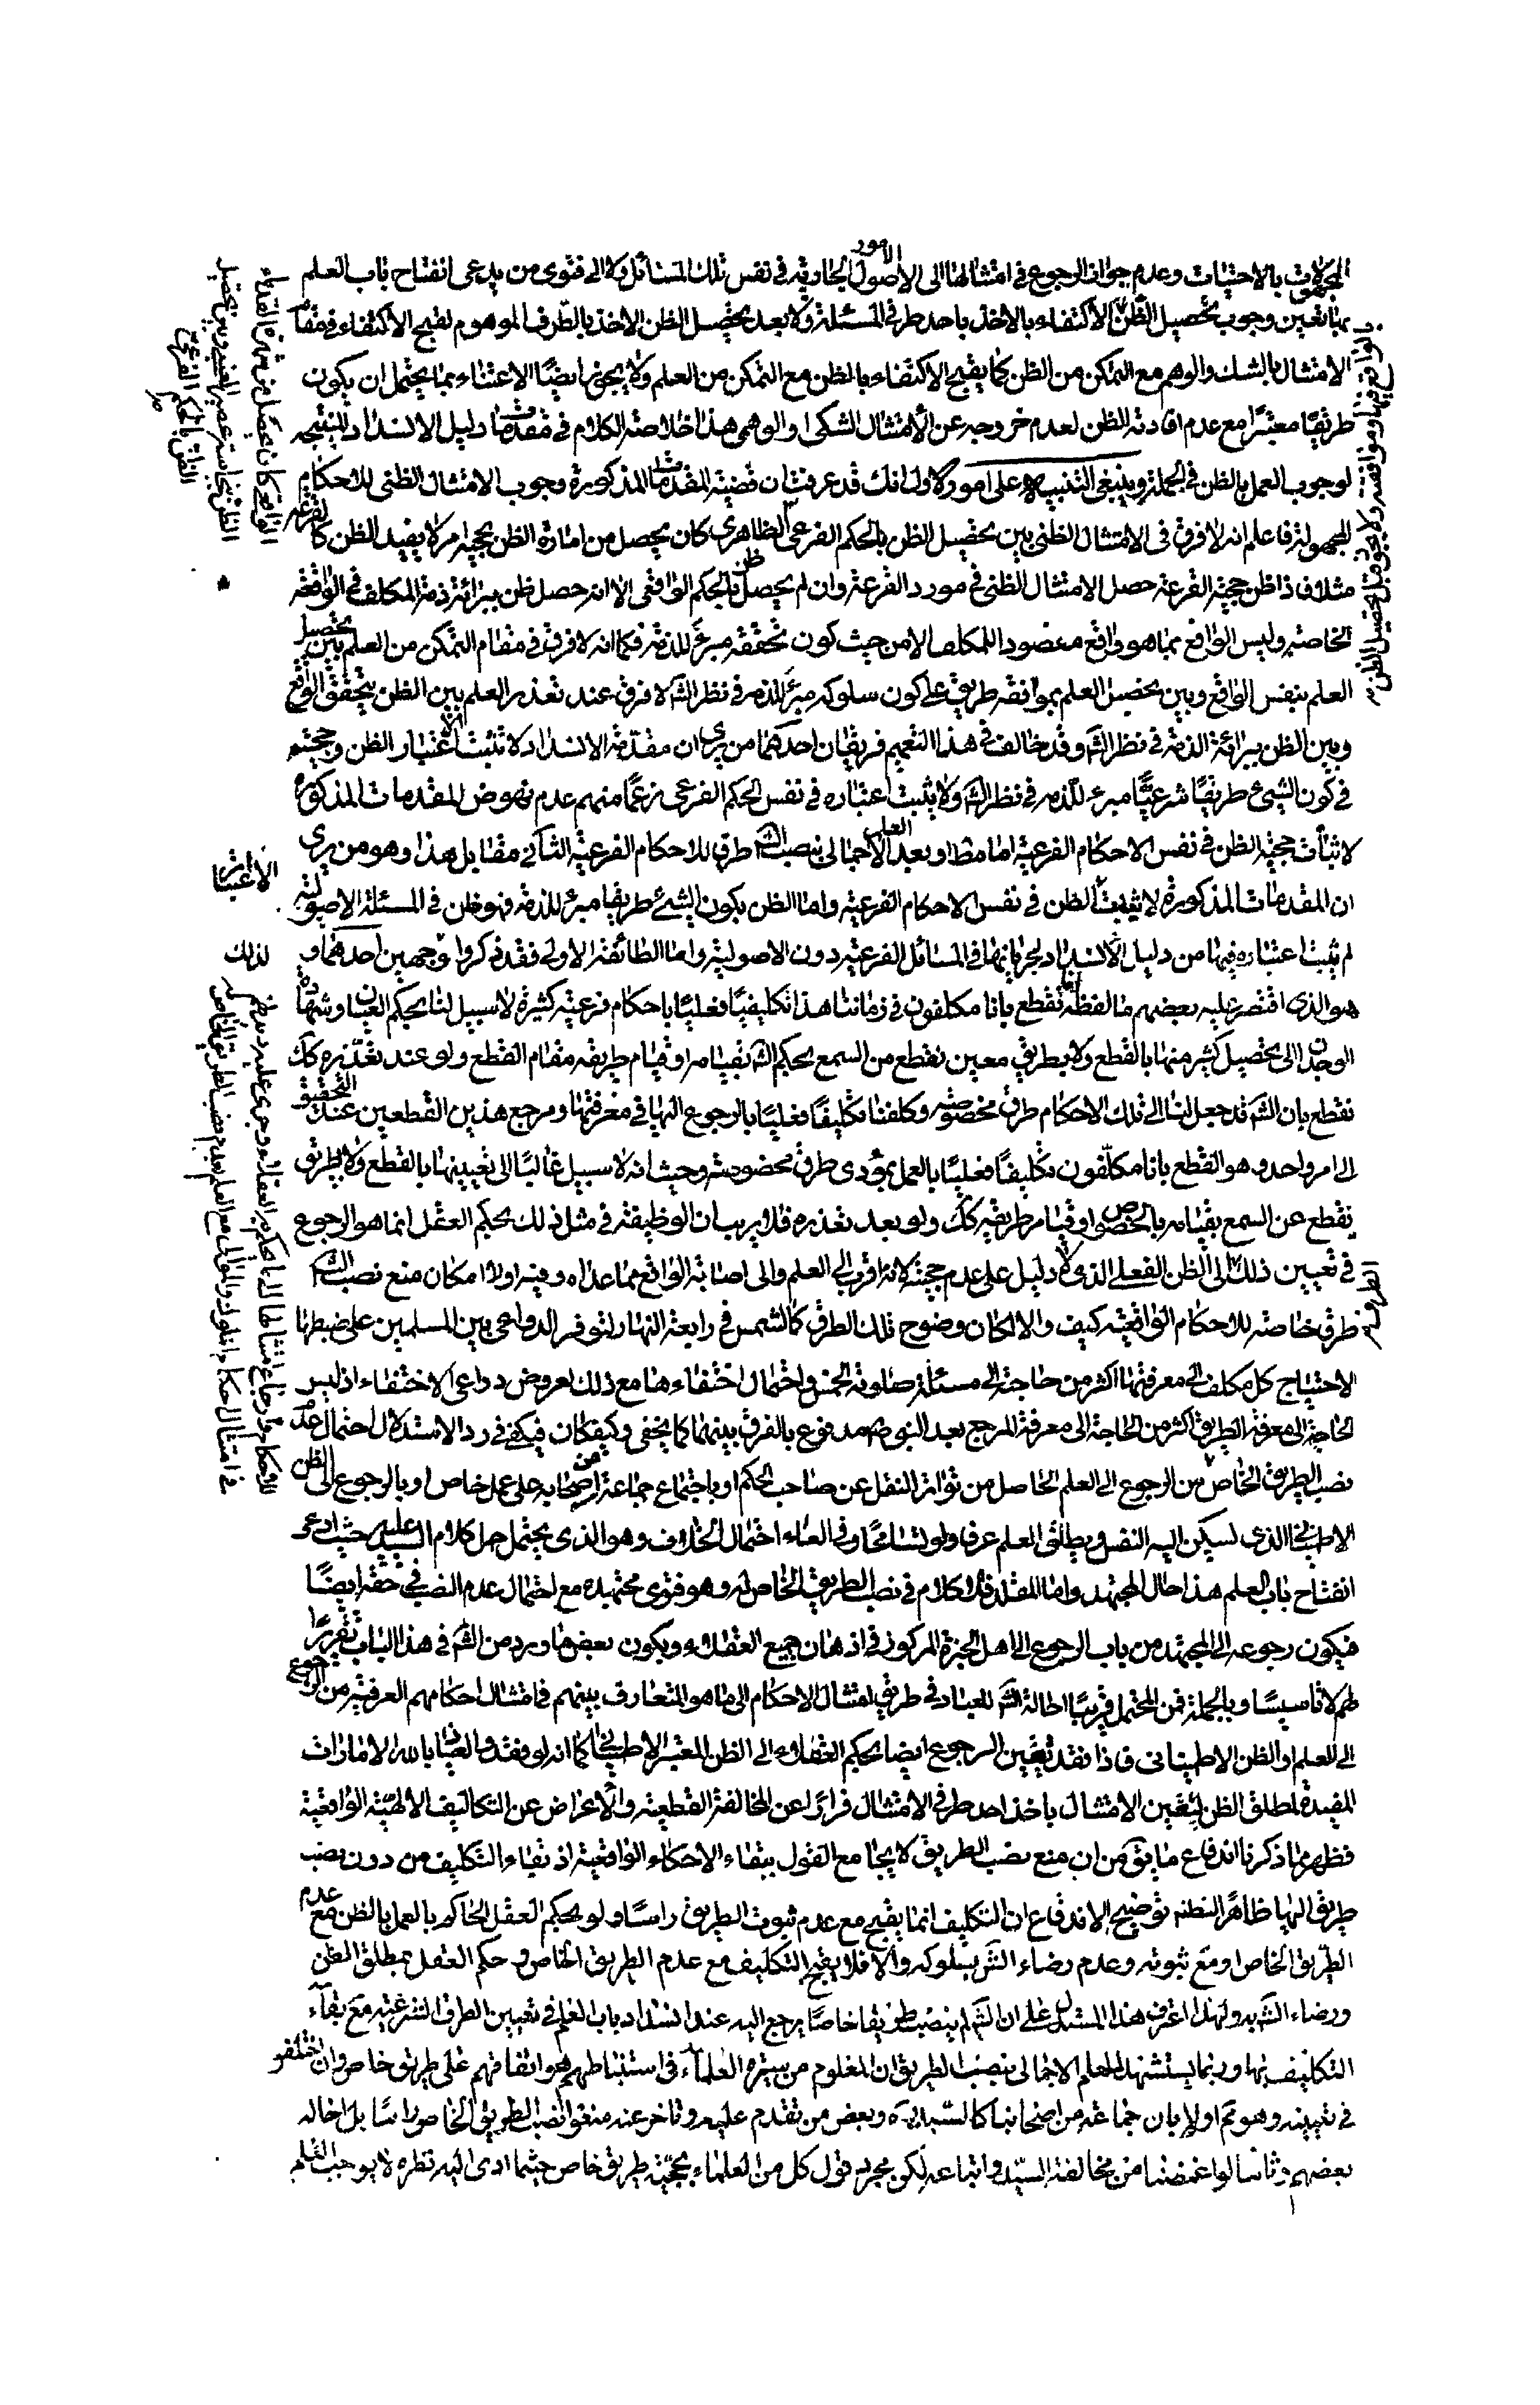 المجهولات بالاحتياط وعدم جواز الرجوع فى امثالها الى الاصول الجارية فى نفس تلك المسائل ولا الى فتوى من يدعى انفتاح باب العلم
بها تعين وجوب تحصيل الظن الاكتفاء بالاخذ باحد طرفى المسئلة ولا بعد تحصيل الظن الاخذ بالطرف الموهوم لقبح الاكتفاء فى مقام
الامتثال بالشك والوهم مع التمكن من الظن كما يقبح الاكتفاء بالظن مع التمكن من العلم ولا يجوز ايضا الاعتناء بما يحتمل ان يكون
طريقا معتبرا مع عدم افادته الظن لعدم خروجه عن الامتثال الشكى او الوهمى هذا خلاصة الكلام فى مقدمات دليل الانسداد المنتجه
لوجوب العمل بالظن فى الجملة وينبغى التنبيه على امور الاول انك قد عرفت ان قضية المقدمات المذكورة وجوب الامتثال الظنى للاحكام
المجهولة فاعلم انه لا فرق فى الامتثال الظنى بين تحصيل الظن بالحكم الفرعى الظاهرى كان يحصل من امارة الظن بحجية امر لا يفيد الظن كالقرعة
مثلا فاذا ظن حجية القرعة حصل الامتثال الظنى فى مورد القرعة وان لم يحصل ظن بالحكم الواقعى الا انه حصل ظن ببرائة ذمة المكلف فى الواقعة
الخاصة وليس الواقع بما هو واقع مقصودا للمكلف الا من حيث كون تحققه مبرء للذمة فكما انه لا فرق فى مقام التمكن من العلم بين تحصيل
العلم بنفس الواقع وبين تحصيل العلم بموافقة طريق علم كون سلوكه مبرء للذمه فى نظر الشه لا فرق عند تعذر العلم بين الظن بتحقق الواقع
وبين الظن ببرائة الذمة فى نظر الشه وقد خالف فى هذا التعميم فريقان احدهما من يرى ان مقدمة الانسداد لا تثبت الا اعتبار الظن وحجيته
فى كون الشيئ طريقا شرعيا مبرء للذمه فى نظر الشه ولا يثبت اعتباره فى نفس الحكم الفرعى زعما منهم عدم نهوض المقدمات المذكورة
لاثبات حجية الظن فى نفس الاحكام الفرعية اما مط او بعد العلم الاجمالى بنصب الشه طرق للاحكام الفرعية الثانى مقابل هذا وهو من يرى
ان المقدمات المذكورة لا تثبت الظن فى نفس الاحكام الفرعية واما الظن بكون الشيئ طريقا مبرء للذمة فهو ظن فى المسئلة الاصولية
لم يثبت اعتباره فيها من دليل الانسداد لجريانها فى المسائل الفرعية دون الاصولية واما الطائفة الاولى فقد ذكروا لذلك وجهين احدهما و
هو الذى اقتصر عليه بعضهم ما لفظه انا نقطع بانا مكلفون فى زماننا هذا تكليفيا فعليا باحكام فرعية كثيرة لا سبيل لنا بحكم العيان وشهادة
الوجدان الى تحصيل كثير منها بالقطع ولا بطريق معين نقطع من السمع بحكم الشه بقيامه او قيام طريقه مقام القطع ولو عند تعذره كك
نقطع بان الشه قد جعل لنا الى تلك الاحكام طرق مخصوصه وكلفنا تكليفا فعليا بالرجوع اليها فى معرفتها ومرجع هذين القطعين عند التحقيق
الى امر واحد وهو القطع بانا مكلفون تكليفا فعليا بالعمل بمؤدى طرق مخصوصة وحيث انه لا سبيل غالبا الى تعيينها بالقطع ولا بطريق
نقطع عن السمع بقيامه بالخصوص او قيام طريقه كك ولو بعد تعذره فلا ريب ان الوظيفة فى مثل ذلك بحكم العقل انما هو الرجوع
فى تعيين ذلك الى الظن الفعلى الذى لا دليل على عدم حجيته لانه اقرب الى العلم والى اصابة الواقع مما عداه وفيه اولا امكان منع نصب الشه
طرق خاصة للاحكام الواقعية كيف والا لكان وضوح تلك الطرق كالشمس فى رابعة النهار لتوفر الدواعى بين المسلمين على ضبطها
الاحتياج كل مكلف الى معرفتها اكثر من حاجته الى مسئلة صلوة الخمس واحتمال اختفاءها مع ذلك لعروض دواعى الاختفاء اذ ليس
الحاجة الى معرفة الطريق اكثر من الحاجة الى معرفة المرجع بعد النبى صه مدفوع بالفرق بينهما كما يخفى وكيفكان فيكفى فى رد الاستدلال احتمال عدم
نصب الطريق الخاص من الرجوع الى العلم الحاصل من تواتر النقل عن صاحب الحكم او باجتماع جماعة من اصحابه على عمل خاص او بالرجوع الى الظن
الاطمينانى الذى يسكن اليه النفس ويطلق العلم عرفا ولو تسامحا وفى الغاء احتمال الخلاف وهو الذى يحتمل حمل كلام السيد عليه حيث ادعى
انفتاح باب العلم هذا حال المجتهد واما المقلد فلا كلام فى نصب الطريق الخاص له وهو فتوى مجتهده مع احتمال عدم النصب فى حقه ايضا
فيكون رجوعه الى المجتهد من باب الرجوع الى اهل الخبرة المركوز فى اذهان جميع العقلاء ويكون بعض ما ورد من الشه فى هذا الباب تقريرا
لهم لا تاسيسا وبالجملة فمن المحتمل قريبا احالة الشه للعباد فى طريق امتثال الاحكام الى ما هو المتعارف بينهم فى امتثال احكامهم العرفية من الرجوع
الى العلم او الظن الاطمينانى فاذا فقد تعين الرجوع ايضا بحكم العقلاء الى الظن المعتبر الاطمينانى كما انه لو فقد والعياذ بالله الامارات
المفيدة لمطلق الظن لتعين الامتثال باخذ احد طرفى الامتثال فرارا عن المخالفة القطعية والاعراض عن التكاليف الالهية الواقعية
فظهر مما ذكرنا اندفاع ما يق من ان منع نصب الطريق لا يجامع القول ببقاء الاحكام الواقعية اذ بقاء التكليف من دون نصب
طريق اليها ظاهر البطلان توضيح الاندفاع ان التكليف انما يقبح مع عدم ثبوت الطريق راسا ولو بحكم العقل الحاكم بالعمل بالظن مع عدم
الطريق الخاص او مع ثبوته وعدم رضاء الشه بسلوكه والا فلا يقبح التكليف مع عدم الطريق الخاص وحكم العقل بمطلق الظن
ورضاء الشه به ولهذا اعترف هذا المستدل على ان الشه لم ينصب طريقا خاصا يرجع اليه عند انسداد باب العلم فى تعيين الطرق الشرعية مع بقاء
التكليف بها وربما يستشهد للعلم الاجمالى بنصب الطريق ان المعلوم من سيرة العلماء فى استنباطهم هو اتفاقهم على طريق خاص وان اختلفوا
فى تعيينه وهو مم اولا بان جماعة من اصحابنا كالسيد ره وبعض من تقدم عليه وتاخر عنه منعوا نصب الطريق الخاص راسا بل احاله
بعضهم وثانيا لو اغمضنا من مخالفة السيد واتباعه لكن مجرد قول كل من العلماء بحجية طريق خاص حيثما ادى اليه نظره لا يوجب العلم